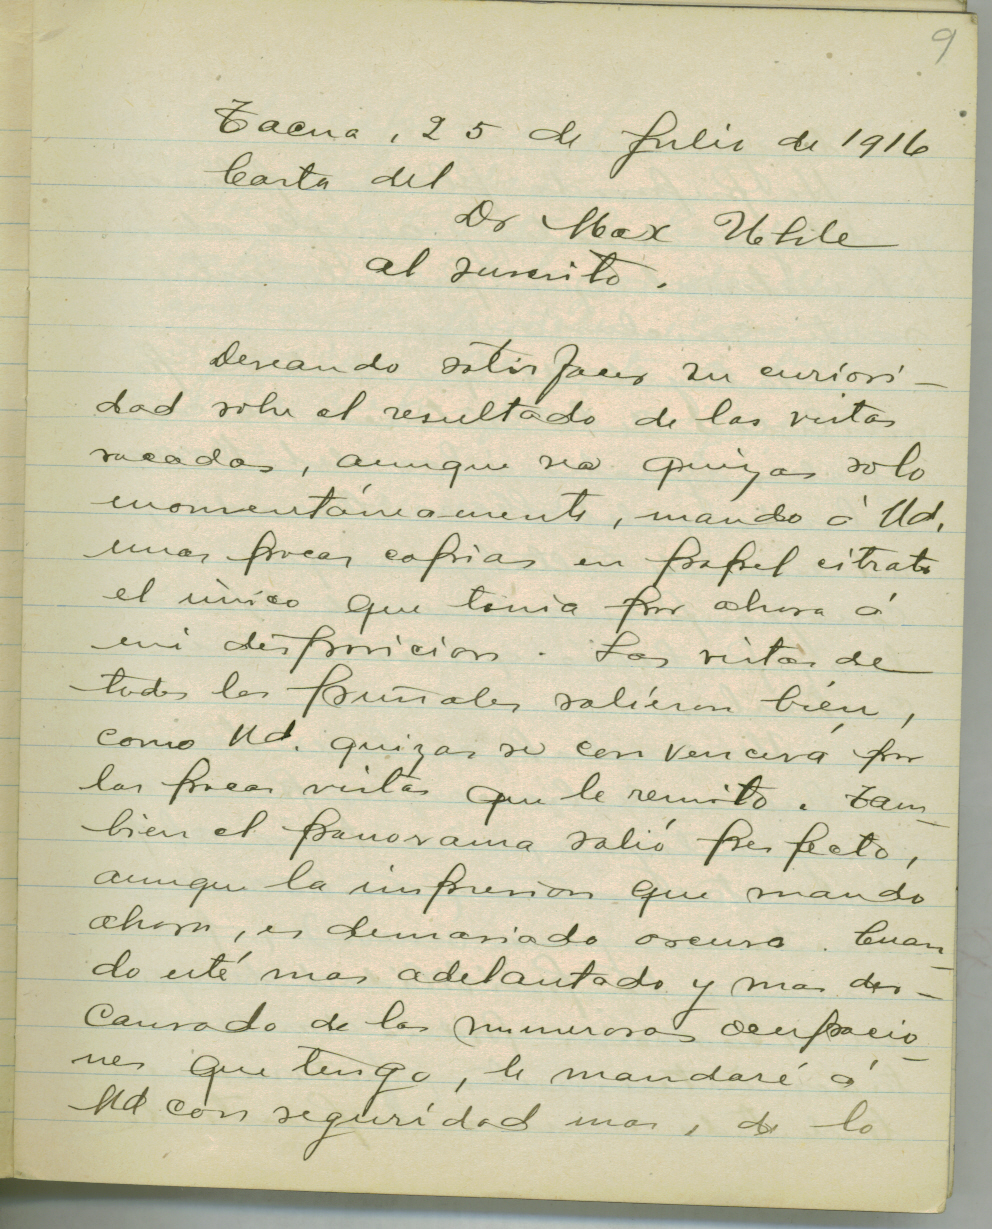 9
Tacna, 25 de Julio de 1916
Carta del
Dr Max Uhle
al suscrito.
Deseando satisfacer su curiosi-
dad sobre el resultado de las vistas
sacadas, aunque sea quizas solo
momentáneamente, mando á Ud.
unas pocas copias en papel citrato
el único que tenia por ahora á
mi disposicion. Las vistas de
todos los puñales saliéron bién,
como Ud. quizas se convencerá por
las pocas vistas que le remito. Tam-
bien el panorama salió perfecto,
aunque la impresion que mando
ahora, es demasiado oscura. Cuan-
do esté mas adelantado y mas des-
cansado de las numerosas ocupacio-
nes que tengo, le mandaré á
Ud con seguridad mas, de lo